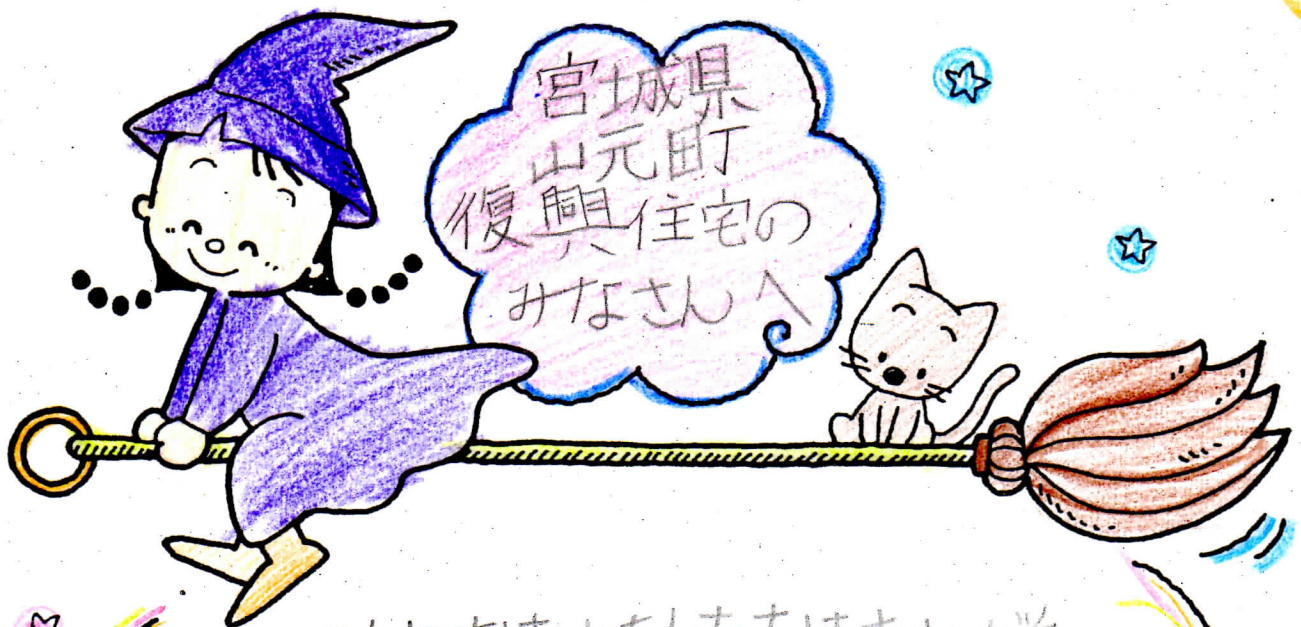 宮城県
山元町
復興住宅の
みなさんへ